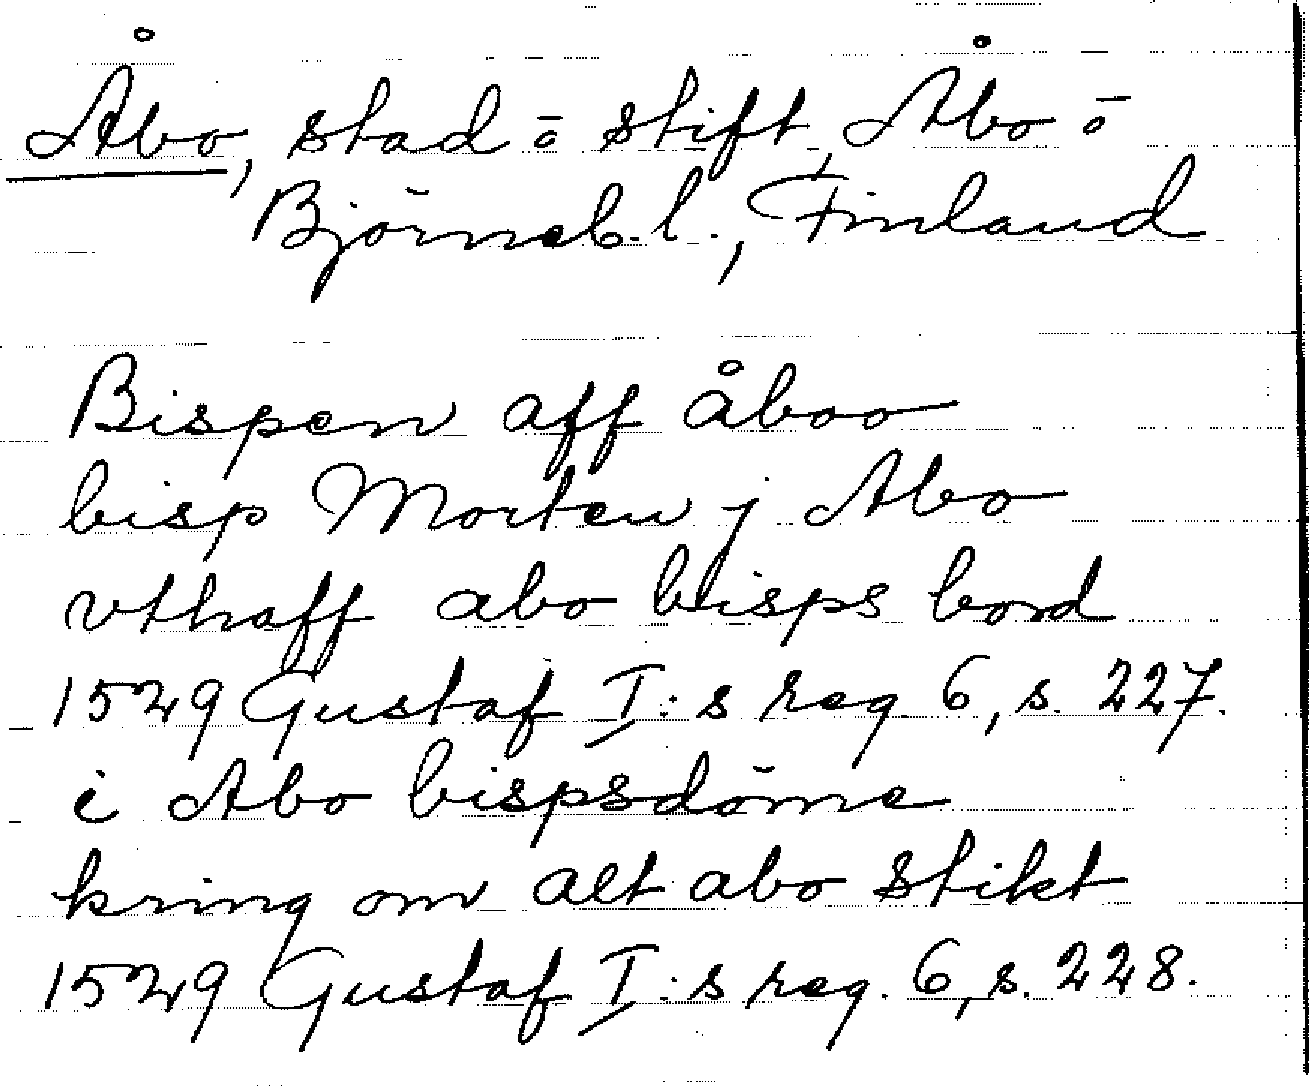 Åbo, stad ō stift, Åbo ō
Björneb. l., Finland
Bispen aff åboo
bisp Morten j Abo
vthaff abo bisps bord
1529 Gustaf I:s reg. 6, s. 227.
i Abo bispsdöme
kring om alt abo stikt
1529 Gustaf I:s reg. 6, s. 228.